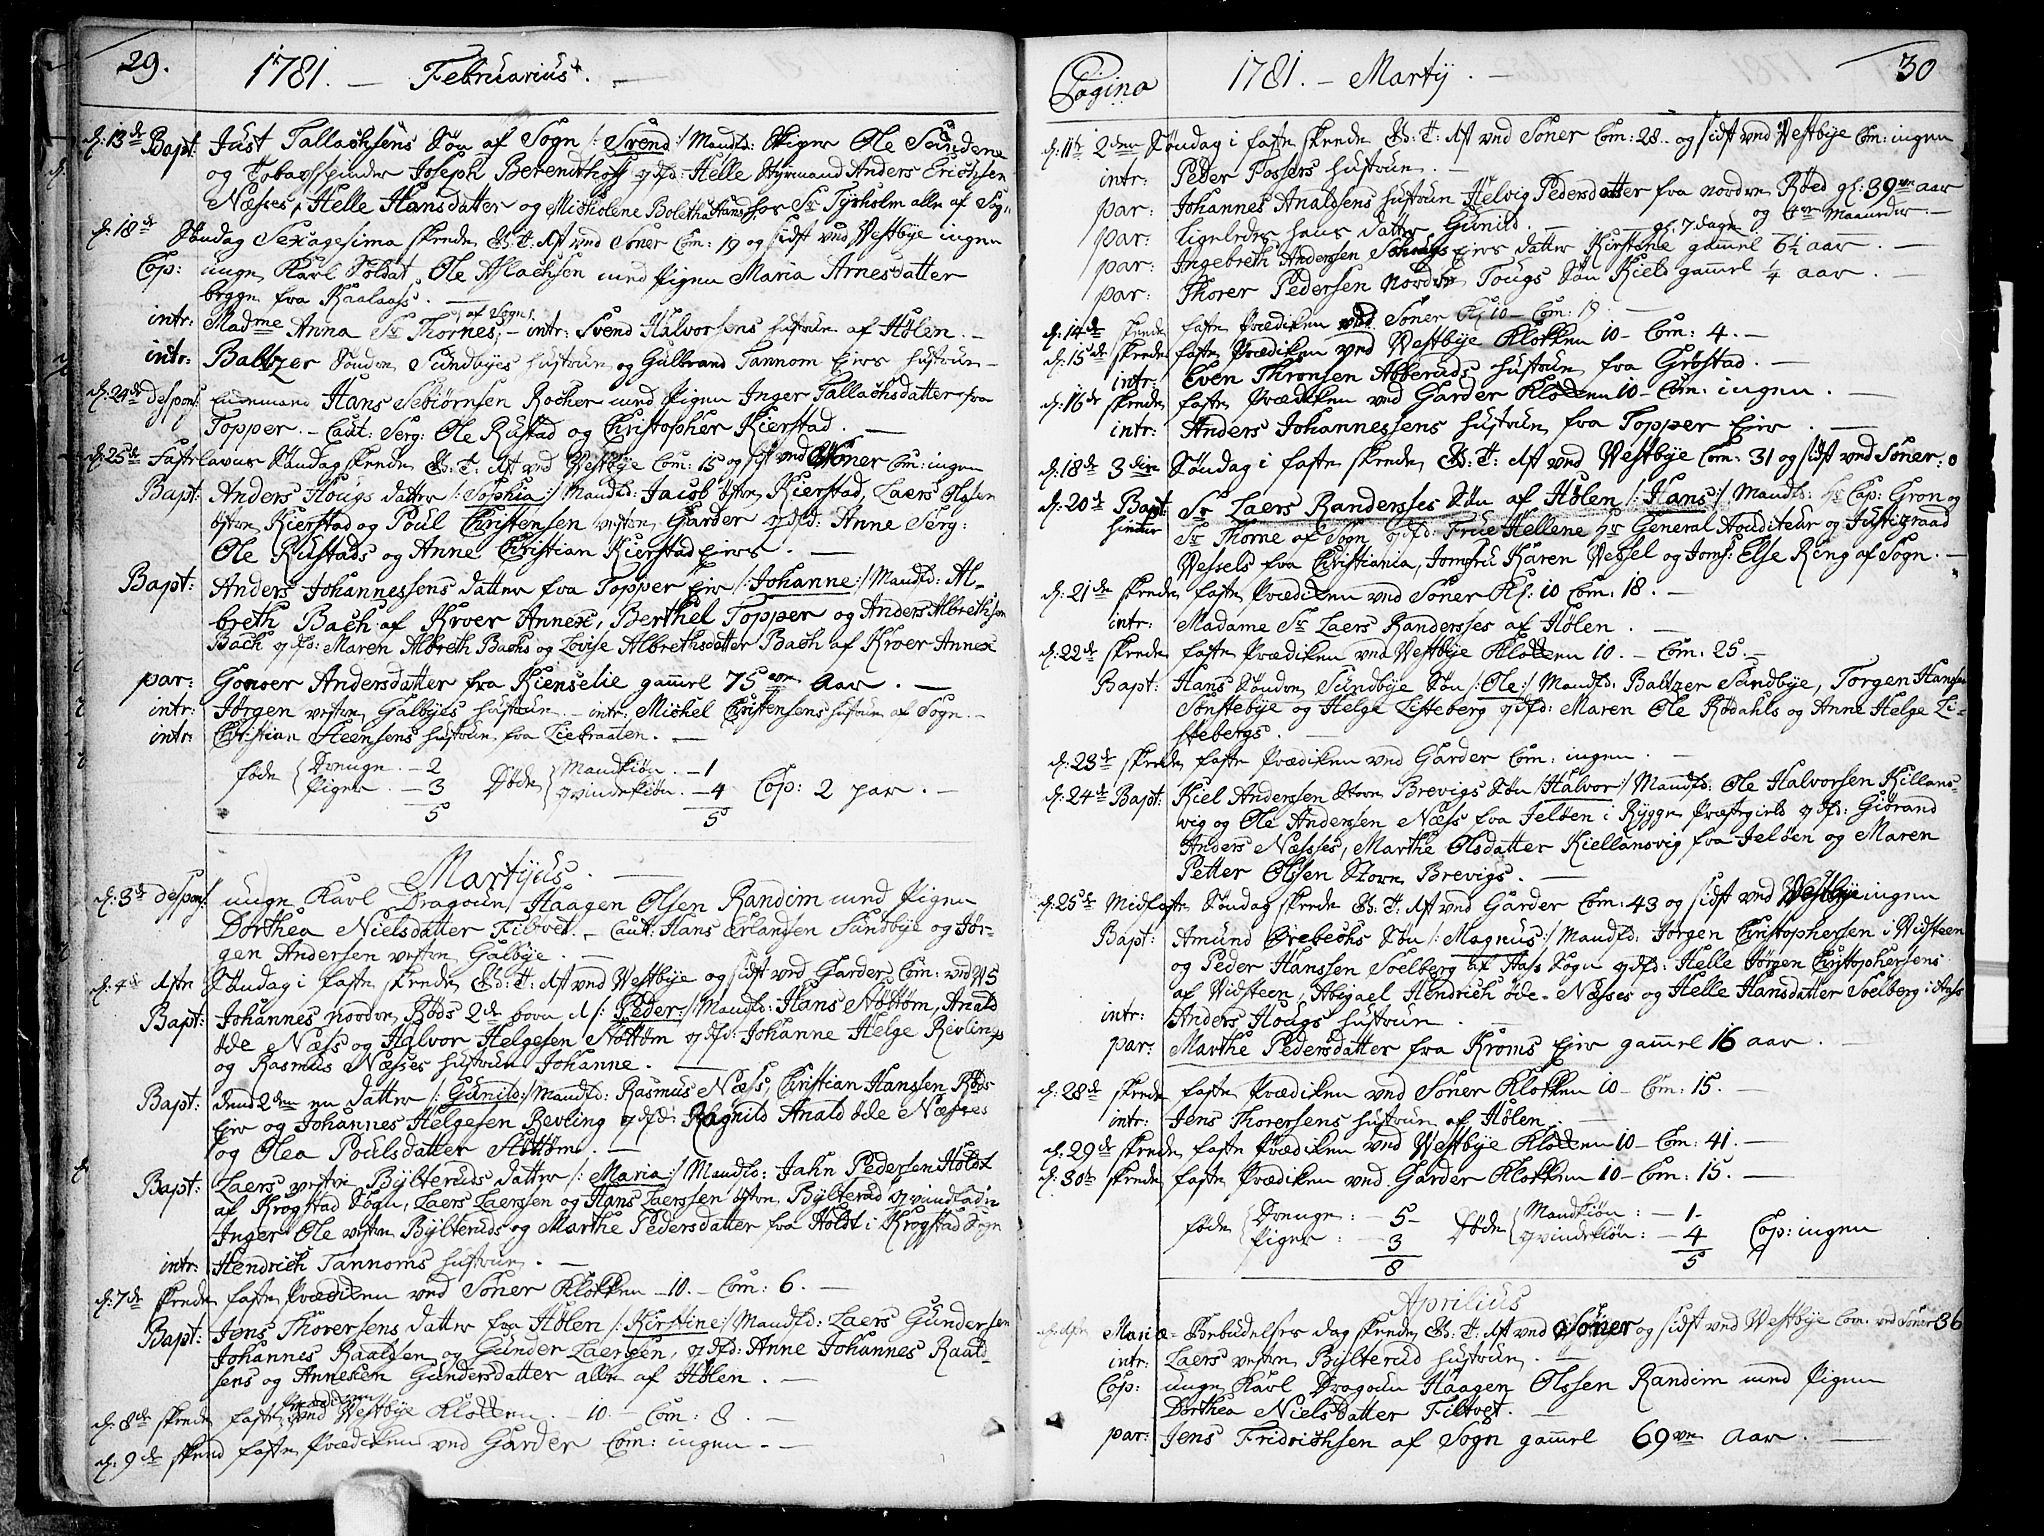 29.
1781. – Februarius. –
d: 13de Bapt: Just Tallachsens Søn af Sogn /: Svend :/ Mandfd: Ole
og Tobachspinder Joseph Berendthoff qdfd: Helle Styrmand Anders Erichsen
Næsses, Helle Hansdatter og Boletha hos Sr Tyrholm alle af Sog:
d: 18de Søndag Sexagesima skrede G: T: Aft ved Soner Com: 19 og sidst ved Westbye ingen
Cop: unge Karl Soldat Ole Aslachsen med Pigen Maria Arnesdatter
begge fra Kaalaass. –
intr: Madme Anna Sr Thornes, af Sogn – intr: Svend Halvorsens hustrue af Hølen. –
intr: Baltzer Søndre Sundbyes hustrue og Gulbrand Tannom Eiers hustrue –
d: 24de despons: Enkemand Hans Sebiørnsen Rocher med Pigen Inger Tallachsdatter fra
Topper. – Caut: Serg: Ole Rustad og Christopher Kierstad. –
d: 25de Fastelavns Søndag skrede G: T: Aft ved Westbye Com: 15 og sidst ved Soner Com: ingen
Bapt: Anders Hougs datter /: Sophia :/ Mandfd: Jacob østre Kierstad, Laers Olssen
østre Kierstad og Poul Christensen vestre Garder qdfd: Anne Serg:
Ole Rustads og Anne Christian Kierstad Eiers. –
Bapt: Anders Johannessens datter fra Topper Eie /: Johanne :/ Mandfd: Al-
breth Bach af Kroer Annex, Berthel Topper og Anders Albrethsen
Bach qdfd: Maren Albreth Bachs og Lovise Albrethsdatter Bach af Kroer Annex
par: Gonoer Andersdatter fra Kienselie gamel 75 Aar. –
intr: Jørgen vestre Galbyes hustrue – intr: Michel Christensens hustrue af Sogn –
intr: Christian Heensens hustrue fra Liebraaten. –
føde { Drenge. – 2 Døde { Mandkiøn. – 1
Piger. – 3 qvindekiøn. – 4 Cop: 2 par. –
5 5
Martyus. –
d: 3de despons: unge Karl Dragoun Haagen Olsen Randim med Pigen
Dorthea Nielsdatter Filtvet. – Caut: Hans Erlandsen Sundbye og Jør-
gen Andersen vestre Galbye. –
d: 4de 1ste Søndag i faste skrede G: T: Aft ved Westbye og sidst ved Garder Com: ved W 5
Bapt: Johannes nordre Røds 2de børn /: Peder :/ Mandfd: Hans Støttøm, Anald
øde Næss og Halvor Helgesen Støttøm qdfd: Johanne Helge Revlings
og Rasmus Næsses hustrue Johanne. –
Bapt: dend 2den en datter /: Gunild :/ Mandfd: Rasmus Næss, Christian Hanssen Røds
Eie og Johannes Helgesen Revling qdfd: Ragnild Anald øde Næsses
og Olea Poulsdatter Støttøm. –
Bapt: Laers vestre Bylteruds datter /: Maria :/ Mandfd: Jahn Pedersen Holdt
af Krogstad Sogn, Laers Laerssen og Hans Laerssen østre Bylterud qvindfad:
Inger Ole vestre Bylteruds og Marthe Pedersdatter fra Holdt i Krogstad Sogn
intr: Hendrich Tannoms hustrue. –
d: 7de skrede faste Prædiken ved Soner Klokken – 10. – Com: 6. –
Bapt: Jens Thorersens datter fra Hølen /: Kirstine :/ Mandfd: Laers Gundersen
Johannes Raaldsen og Gunder Laersen, qdfd: Anne Johannes Raald-
sens og Anneken Gundersdatter alle af Hølen. –
d: 8de skrede faste Prædiken ved Westbye Klokken. – 10. – Com: 8. –
d: 9de skrede faste Prædiken ved Garder Com: ingen –
Pagina 1781. – Martij. – 30
d: 11te 2den Søndag i faste skrede G: T: Aft ved Soner Com: 28 – og sidst ved Westbye Com: ingen
intr: Peder Possers hustrue. –
par: Johannes Analdsens hustrue Helvig Pedersdatter fra nordre Røed gl: 39 aar
par: Ligeledes hans datter Gunild – gl: 7 dage og Maaneder. –
par: Ingebreth Andersen Eiers datter Kirstine gamel 6½ aar. –
par: Thorer Pedersen Nordre Tougs Søn Kield gamel ¼ aar. –
d: 14de skrede faste Prædiken ved Soner Kl 10 – Com: 19 –
d: 15de skrede faste Prædiken ved Westbye Klokken 10 – Com: 4. –
intr: Even Thronsen Abberuds hustrue fra Grøstad. –
d: 16de skrede faste Prædiken ved Garder Klokken 10 – Com: ingen. –
intr: Anders Johannessens hustrue fra Topper Eie. –
d: 18de 3die Søndag i faste skrede G: T: Aft ved Westbye Com: 31 og sidst ved Soner: 0
d: 20de Bapt: Sr Laers Randersses Søn af Hølen /: Hans :/ Mandfd: Hr Cap: Gron og
Sr Thorne af Sogn qdfd: Frue Hellene Hr General Auditeur og Justizraad
Wessels fra Christiania, Jomfru Karen Wessel og Jomf: Else Ring af Sogn. –
d: 21de skrede faste Prædiken ved Soner Kl: 10 Com: 18. –
intr: Madame Sr Laers Randersses af Hølen. –
d: 22de skrede faste Prædiken ved Westbye Klokken 10. – Com: 25. –
Bapt: Hans Søndre Sundbye Søn /: Ole :/ Mandfd: Baltzer Sundbye, Torgen Hansen
Sønstebye og Helge Listeberg qdfd: Maren Ole Rødahls og Anne Helge Li-
stebergs. –
d: 23de skrede faste Prædiken ved Garder Com: ingen. –
d: 24de Bapt: Kiel Anderssen Store Brevigs Søn /: Halvor :/ Mandfd: Ole Halvorsen Killans-
vig og Ole Anderssen Næss fra Jeløen i Rygge Præstegield qdfd: Giørand
Anders Næsses, Marthe Olsdatter Kiellansvig fra Jeløen og Maren
Petter Olssen Store Brevigs. –
d: 25de Midfaste Søndag skrede G: T: Aft ved Garder Com: 43 og sidst ved Westbye ingen
Bapt: Amund Ørebechs Søn /: Magnus :/ Mandfd: Jørgen Christophersen i Vidsteen
og Peder Hanssen Soelberg af Aass Sogn qdfd: Helle Jørgen Christophersens
af Vidsteen, Abigael Hendrich øde – Næsses og Helle Hansdatter Soelberg i Aass
intr: Anders Hougs hustrue. –
par: Marthe Pedersdatter fra Kroms Eie gamel 16 aar. –
d: 28de skrede faste Prædiken ved Soner Klokken 10 – Com: 15. –
intr: Jens Thorersens hustrue af Hølen. –
d: 29de skrede faste Prædiken ved Westbye Klokken 10 – Com: 41. –
d: 30te skrede faste Prædiken ved Garder Klokken 10 – Com: 15. –
føde { Drenge: – 5 – Døde { Mandkiøn: – 1 –
Piger: – 3 qvindekiøn: – 4 Cop: ingen
8 5
Aprilius
Mariæ – Bebudelses dag skrede G: T: Aft ved Soner og sidst ved Westbye Com. ved Soner 36
intr: Laers vestre Bylterud hustrue. –
Cop: unge Karl Dragoun Haagen Olssen Randim med Pigen
Dorthea Nielsdatter Filtvet. –
par: Jens Fridrichsen af Sogn gamel 69 Aar. –